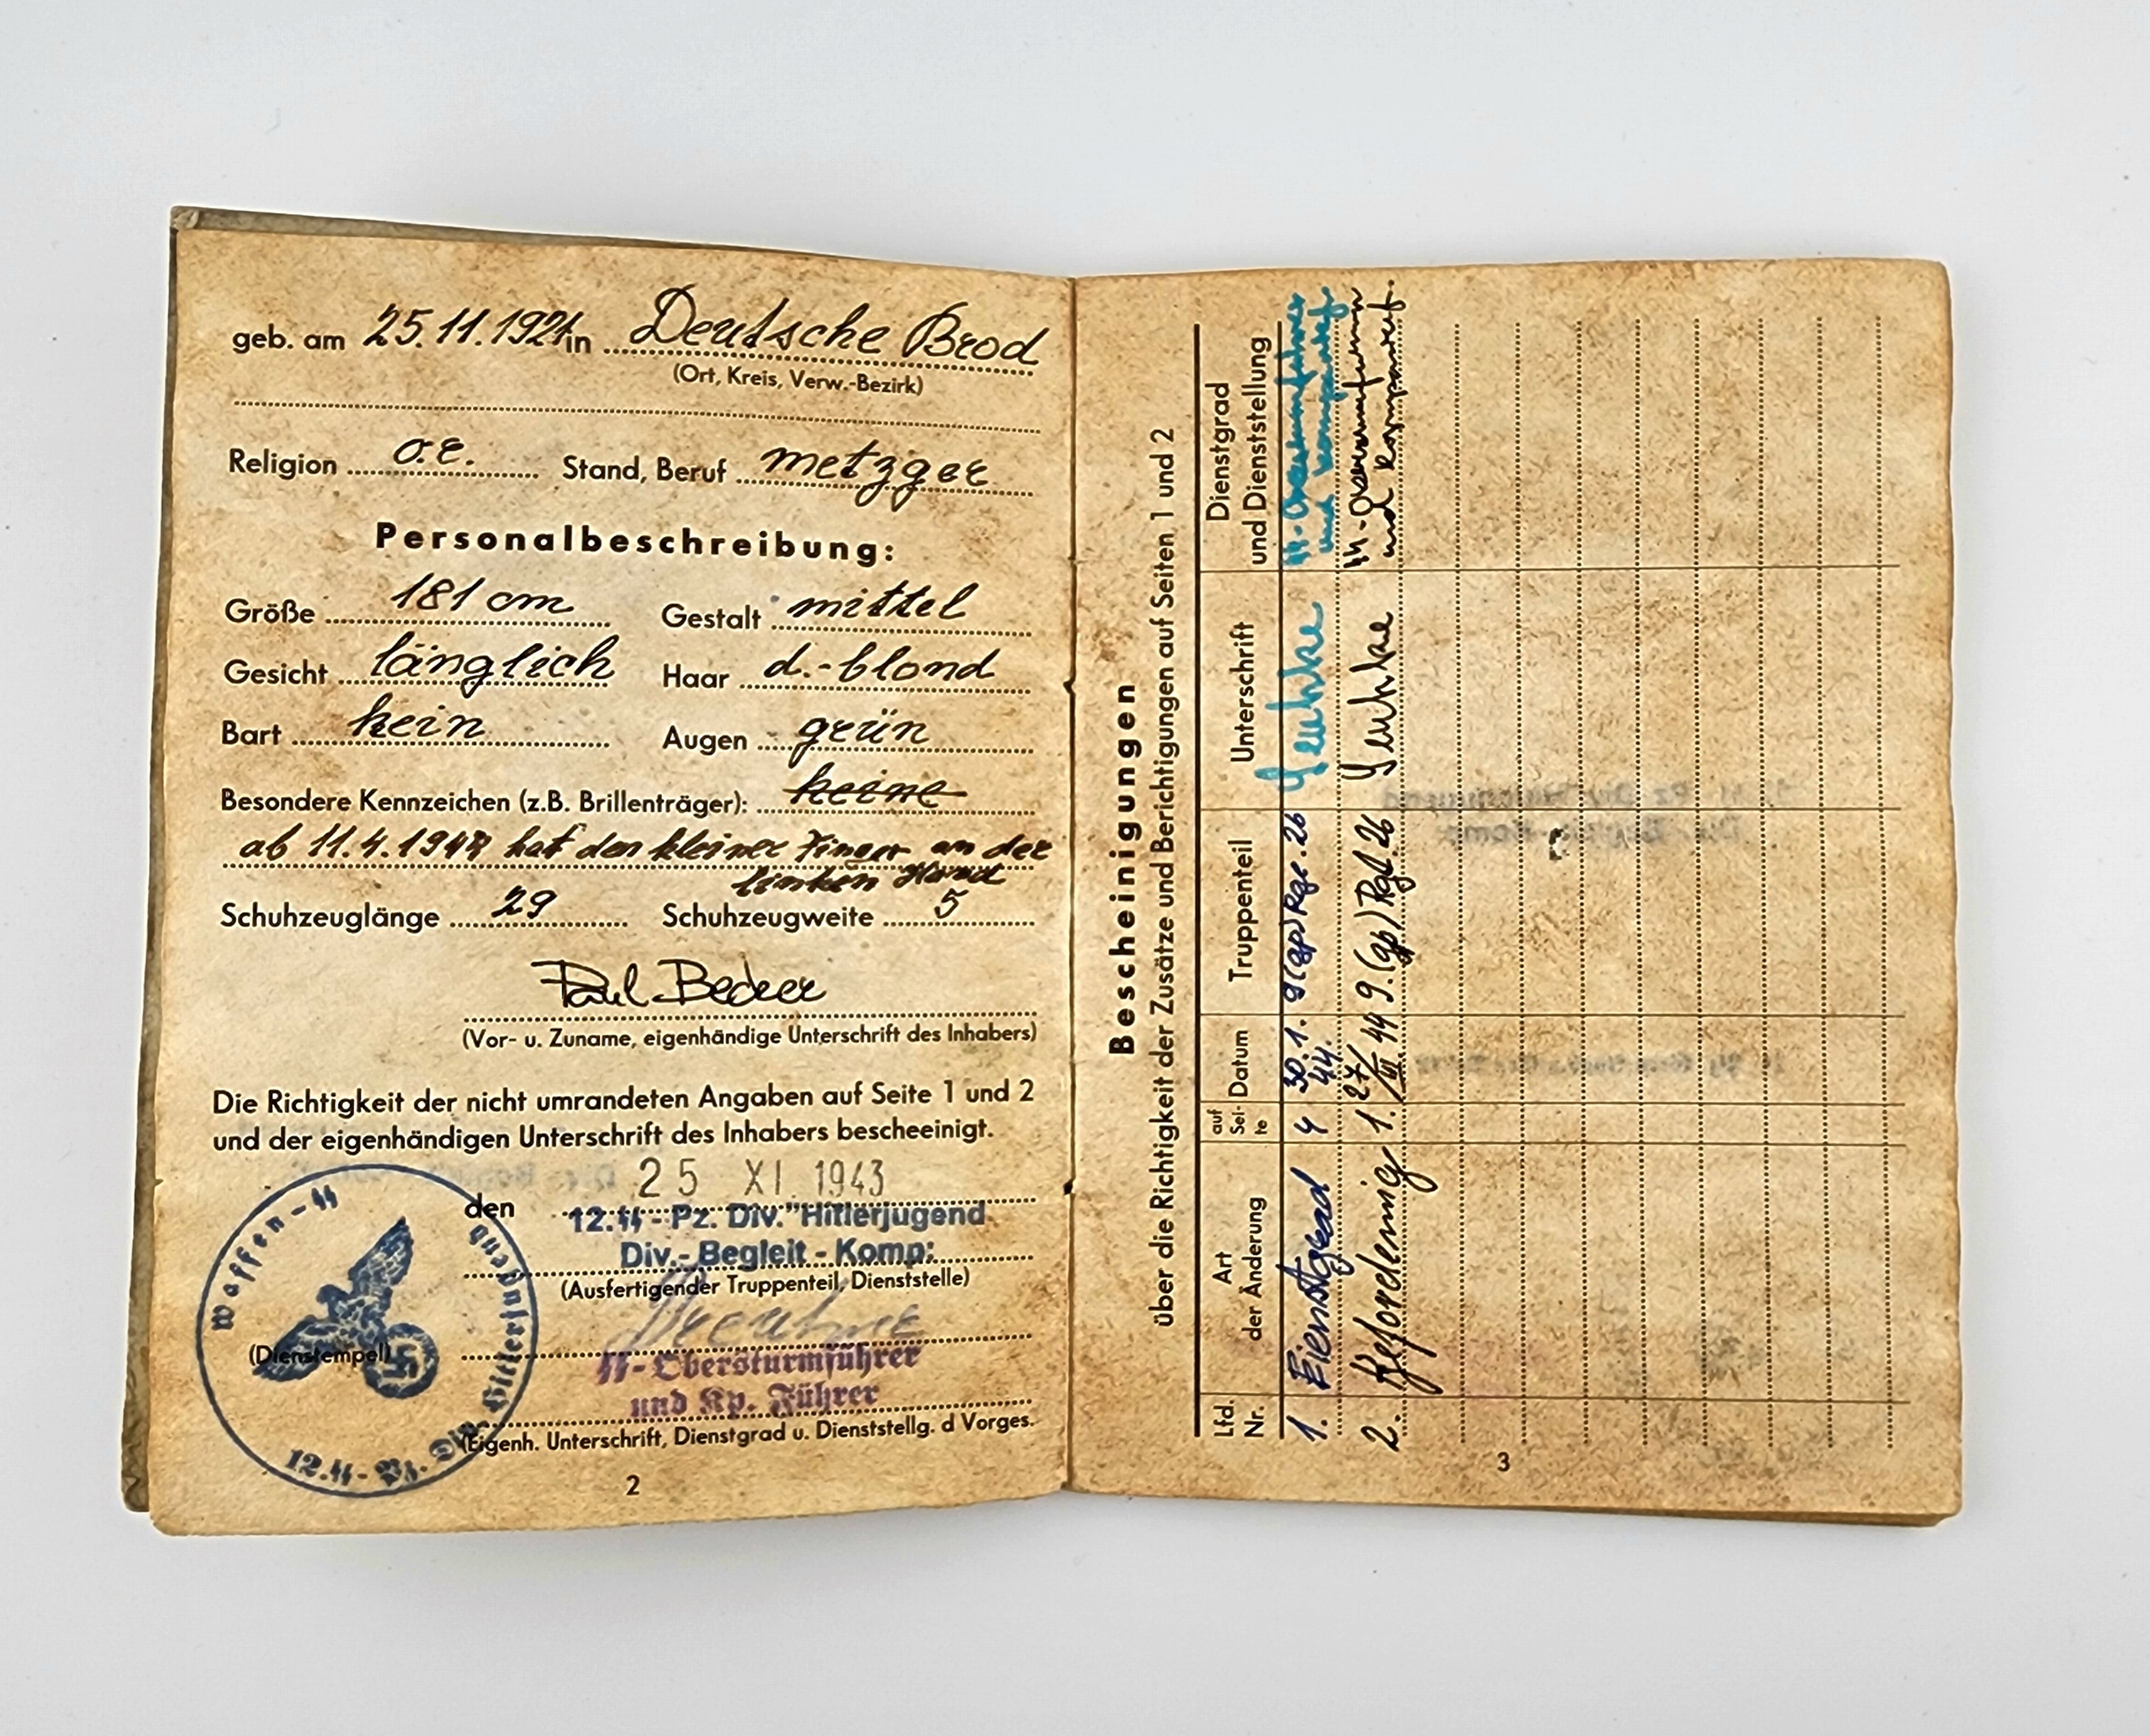 geb. am 25.11.1921 in Deutsche Brod
(Ort, Kreis, Verw.-Bezirk)
Religion o.E. Stand, Beruf metzger
Personalbeschreibung:
Größe 181 cm Gestalt mittel
Gesicht länglich Haar d.-blond
Bart kein Augen grün
Besondere Kennzeichen (z.B. Brillenträger): keine
ab 11.4.1944 hat den kleiner Finger an der
linken Hand
Schuhzeuglänge 29 Schuhzeugweite 5
Paul Becker
(Vor- u. Zuname, eigenhändige Unterschrift des Inhabers)
Die Richtigkeit der nicht umrandeten Angaben auf Seite 1 und 2
und der eigenhändigen Unterschrift des Inhabers bescheeinigt.
den 25 XI. 1943
12.SS-Pz. Div."Hitlerjugend
Div.-Begleit-Komp:
(Ausfertigender Truppenteil, Dienststelle)
SS-Obersturmführer
und Kp. Führer
(Eigenh. Unterschrift, Dienstgrad u. Dienststellg. d Vorges.
(Dienstempel)
Waffen-SS
12.SS-Pz.-Div. Hitlerjugend
2
Bescheinigungen
über die Richtigkeit der Zusätze und Berichtigungen auf Seiten 1 und 2
Lfd. Nr. Art der Änderung auf Sei-te Datum Truppenteil Unterschrift Dienstgrad und Dienststellung
1. Dienstgrad 4 30.1.44. 9(gp)Rgt.26
2. Beförderung 1. 27/III 44 9.(gp)Rgt.26
3